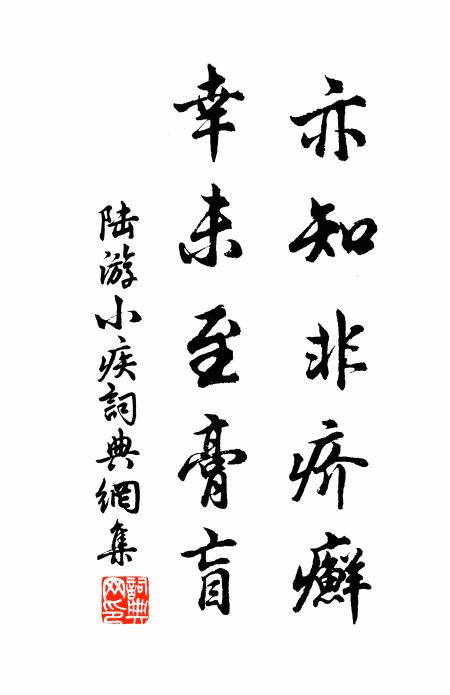 亦知非疥癬
幸未至膏盲
陆游小疾詞典網集
詞典网印